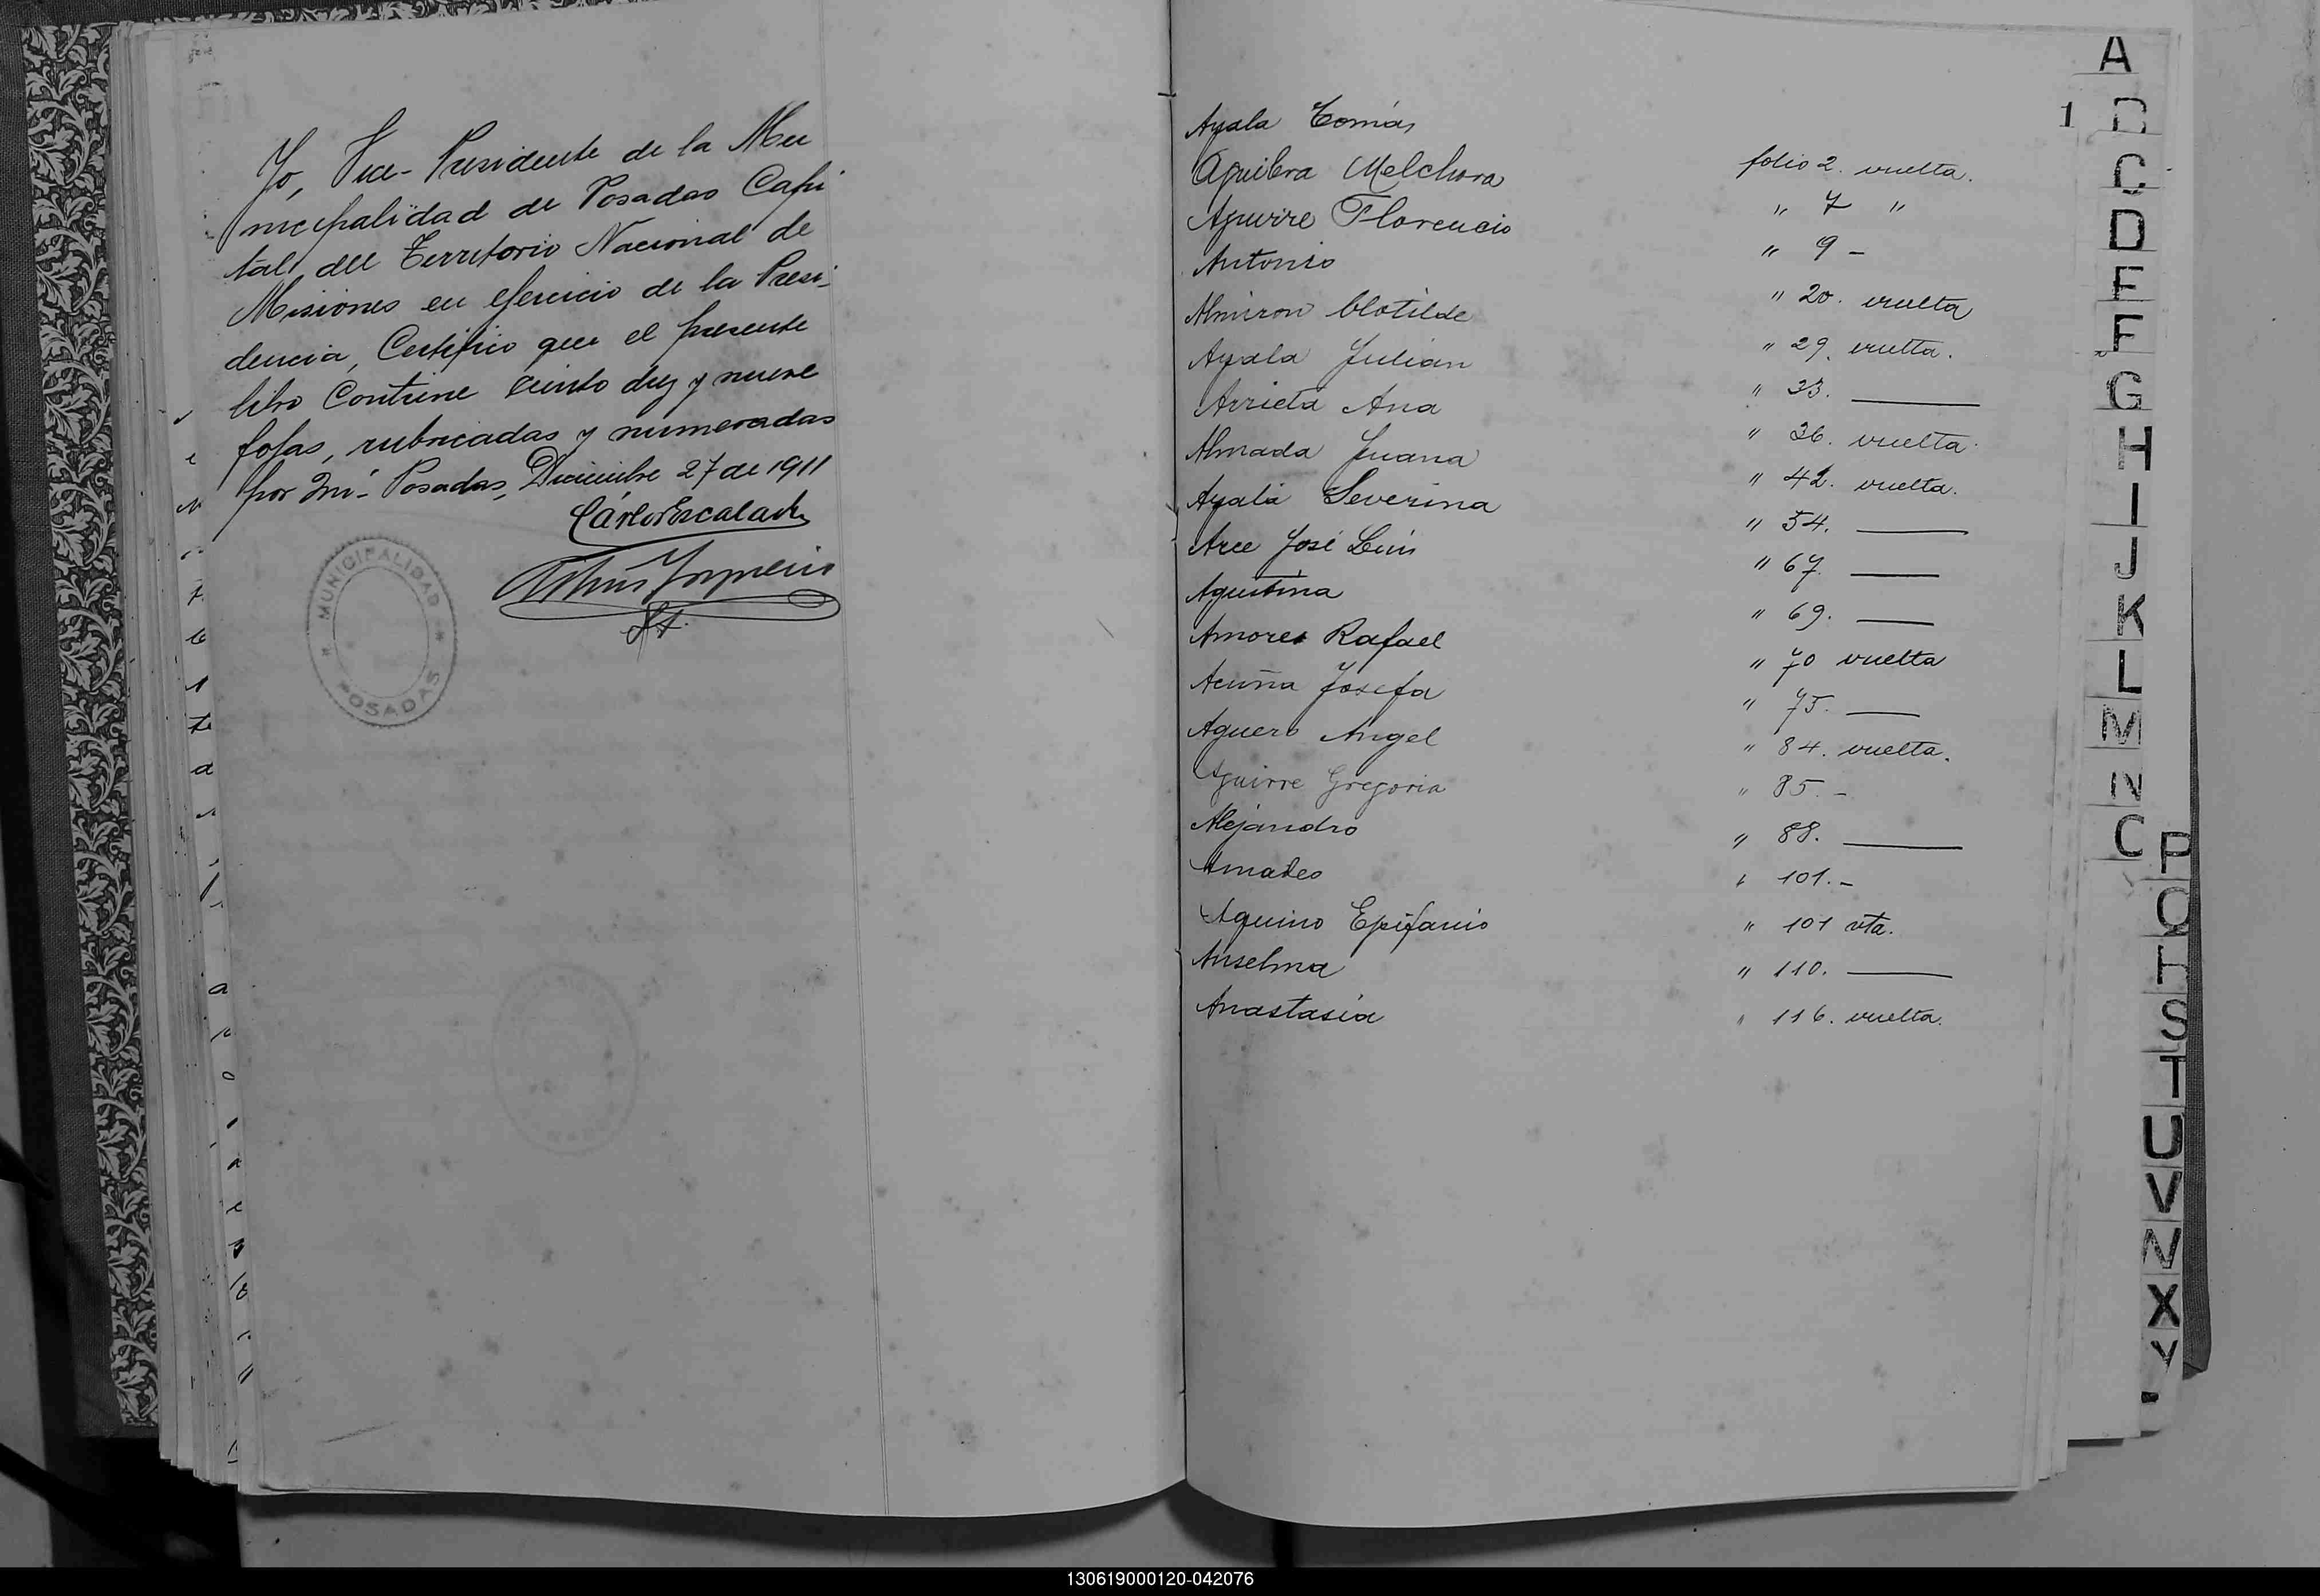 Yo, Vice-Presidente de la Mu
nicipalidad de Posadas Capi
tal, del Territorio Nacional de
Misiones en ejercicio de la Presi-
dencia, Certifico que el presente
libro Contiene ciento diez y nueve
fojas, rubricadas y numeradas
por mi- Posadas, Diciembre 27 de 1911
Cárlos Escalada
MUNICIPALIDAD
POSADAS
1
Ayala Tomás folio 2. vuelta.
Aguilera Melchora " 7 "
Aguirre Florencio " 9 -
Antonio " 20. vuelta
Almiron Clotilde " 29. vuelta.
Ayala Julian " 33.
Arrieta Ana " 36. vuelta.
Almada Juana " 42. vuelta.
Ayala Severina " 54.
Arce José Luis " 67.
Agustina " 69.
Amores Rafael " 70 vuelta
Acuña Josefa " 75.
Aguero Angel " 84. vuelta.
Aguirre Gregoria " 85. -
Alejandro " 88.
Amadeo " 101. -
Aquino Epifanio " 101 vta.
Anselma " 110.
Anastasia " 116. vuelta.
A
C
D
F
G
H
I
J
K
L
M
N
P
S
T
U
V
X
Y
130619000120-042076